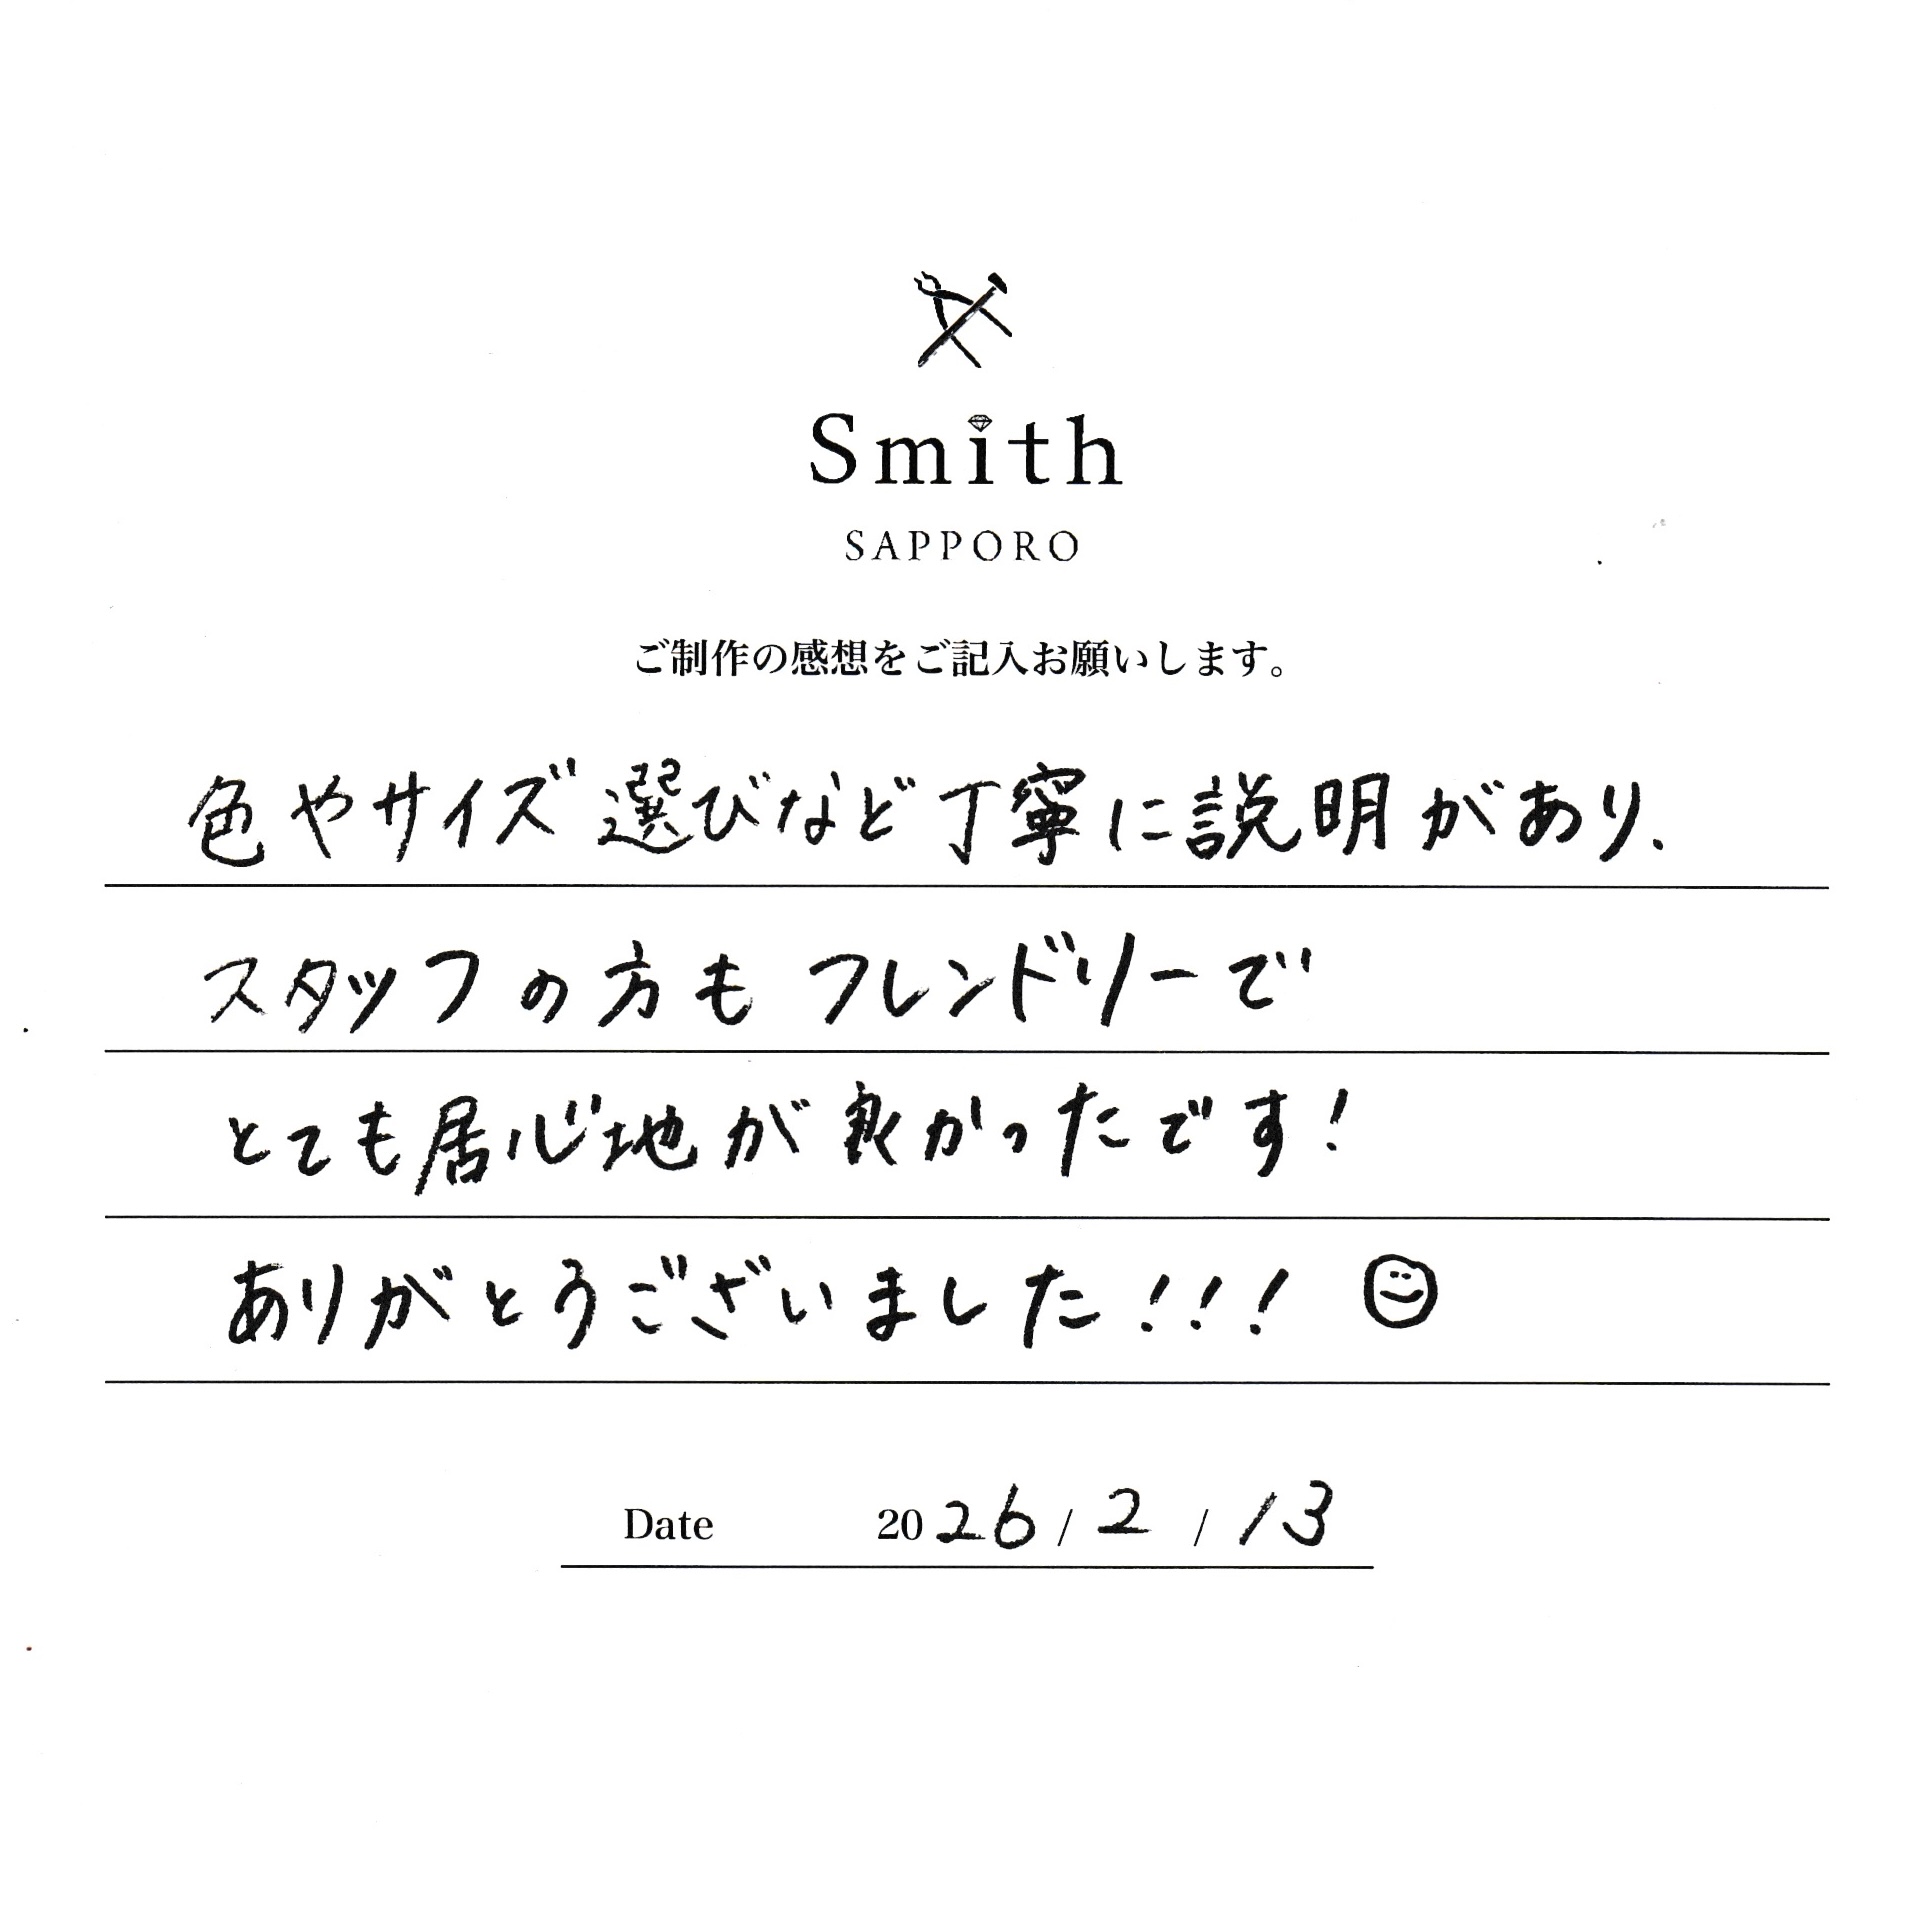 Smith
SAPPORO
ご制作の感想をご記入お願いします。
色やサイズ選びなど丁寧に説明があり、
スタッフの方もフレンドリーで
とても居心地が良かったです!
ありがとうございました!!!
Date 2026/2/13